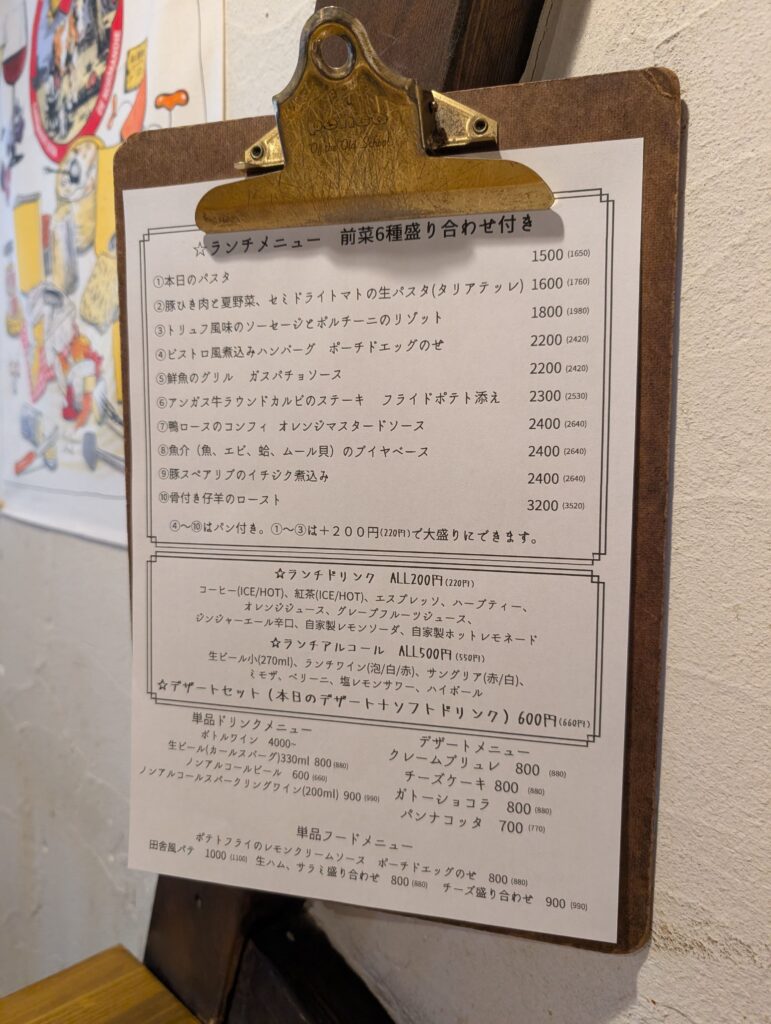 Of the Old School
☆ランチメニュー　前菜6種盛り合わせ付き
①本日のパスタ 1500 (1650)
②豚ひき肉と夏野菜、セミドライトマトの生パスタ(タリアテッレ) 1600 (1760)
③トリュフ風味のソーセージとポルチーニのリゾット 1800 (1980)
④ビストロ風煮込みハンバーグ　ポーチドエッグのせ 2200 (2420)
⑤鮮魚のグリル　ガスパチョソース 2200 (2420)
⑥アンガス牛ラウンドカルビのステーキ　フライドポテト添え 2300 (2530)
⑦鴨ロースのコンフィ オレンジマスタードソース 2400 (2640)
⑧魚介（魚、エビ、蛤、ムール貝）のブイヤベース 2400 (2640)
⑨豚スペアリブのイチジク煮込み 2400 (2640)
⑩骨付き仔羊のロースト 3200 (3520)
④〜⑩はパン付き。①〜③は＋２００円(220円)で大盛りにできます。
☆ランチドリンク　ALL200円(220円)
コーヒー(ICE/HOT)、紅茶(ICE/HOT)、エスプレッソ、ハーブティー、
オレンジジュース、グレープフルーツジュース、
ジンジャーエール辛口、自家製レモンソーダ、自家製ホットレモネード
☆ランチアルコール　ALL500円(550円)
生ビール小(270ml)、ランチワイン(泡/白/赤)、サングリア(赤/白)、
ミモザ、ベリーニ、塩レモンサワー、ハイボール
☆デザートセット（本日のデザート＋ソフトドリンク）600円(660円)
単品ドリンクメニュー
ボトルワイン　4000~
生ビール(カールスバーグ)330ml 800 (880)
ノンアルコールビール　600 (660)
ノンアルコールスパークリングワイン(200ml) 900 (990)
デザートメニュー
クレームブリュレ　800 (880)
チーズケーキ 800 (880)
ガトーショコラ　800 (880)
パンナコッタ　700 (770)
単品フードメニュー
ポテトフライのレモンクリームソース　ポーチドエッグのせ　800 (880)
田舎風パテ　1000 (1100) 生ハム、サラミ盛り合わせ　800 (880)　チーズ盛り合わせ　900 (990)